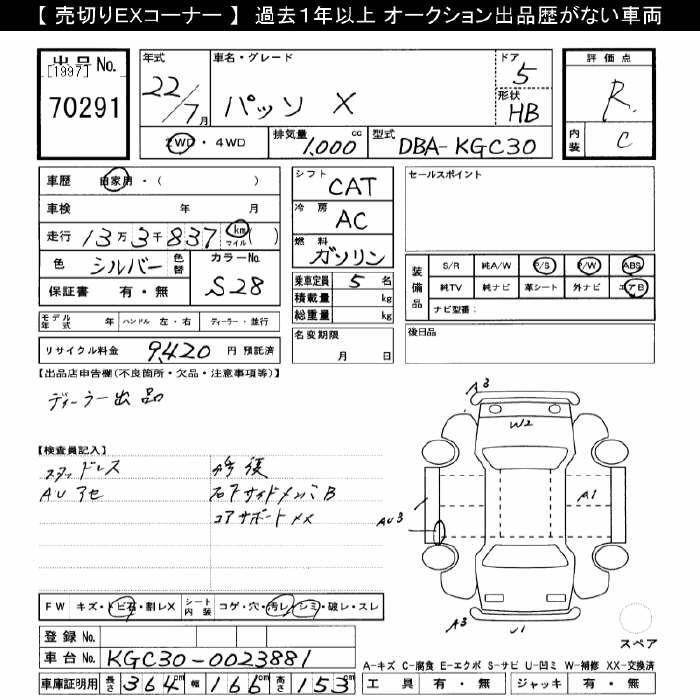 【 売切りEXコーナー 】 過去１年以上 オークション出品歴がない車両
出品No.
[1997]
70291
年式
22/7月
車名・グレード
パッソ X
ドア
5
形状
HB
2WD・4WD
排気量
1,000 cc
型式
DBA-KGC30
評価点
R
内装
C
車歴 自家用・( )
車検 年 月
走行 13万3千837 km マイル ( )
色 シルバー 色替
カラーNo.
S28
保証書 有・無
モデル年式 年 ハンドル 左・右 ディーラー・並行
リサイクル料金 9,420 円 預託済
シフト
CAT
冷房
AC
燃料
ガソリン
乗車定員 5 名
積載量 kg
総重量 kg
名変期限
月 日
セールスポイント
装備品
S/R 純A/W P/S P/W ABS
純TV 純ナビ 革シート 外ナビ エアB
ナビ型番:
後日品
【出品店申告欄(不良箇所・欠品・注意事項等)】
ディーラー出品
【検査員記入】
スタッドレス
AUアセ
右アサイドメンバB
コアサポートXX
A3
W2
A1
AU3
A3
U1
スペア
FW キズ・トビ石・割レX
シート内装 コゲ・穴・汚レ・シミ・破レ・スレ
登録No.
車台No. KGC30-0023881
車庫証明用 長さ 364 cm 幅 166 cm 高さ 153 cm
A-キズ C-腐食 E-エクボ S-サビ U-凹ミ W-補修 XX-交換済
工具 有・無 ジャッキ 有・無